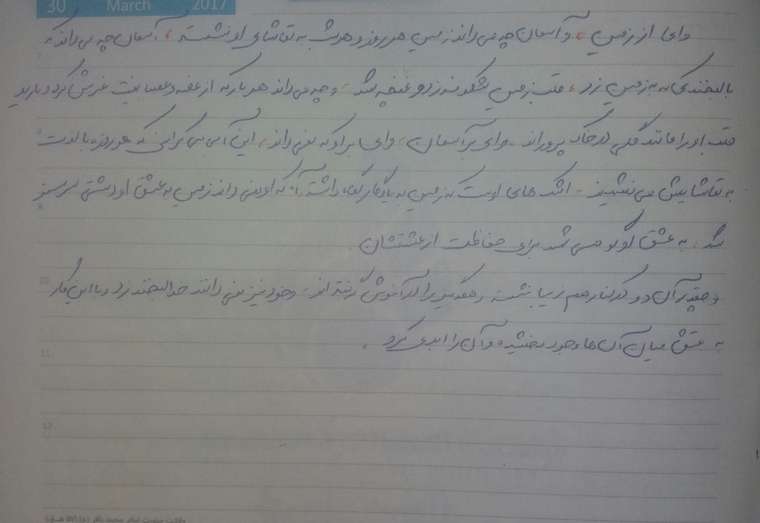 30 March 2017
وای از زمین، و آسمان چه می داند زمین هر روز و هر شب به تماشای او نشسته، آسمان چه می داند که
با لبخندی که به زمین زد، قلب زمین شکوفه زد و غنچه شد، و چه می داند هر بار که از غصه و عصبانیت غرش کرد و بارید
قلب او را مانند گلی در خاک پروراند. وای بر آسمان، وای بر او که نمی داند، این آبی بی کران که هر روز با لذت
به تماشایش می نشیند. اشک های اوست که زمین به یادگار نگاه داشته، که او نمی داند زمین به عشق او دشتی سرسبز
شد، به عشق او کوهی شد برای حفاظت از عشقشان
و چقدر آن دو کنار هم زیبا نشسته و همدیگر را در آغوش گرفته اند. و خود نیز نمی دانند خدا لبخند زد و با این کار
به عشق میان آن ها وجود بخشیده و آن را ابدی کرد.
10
11
12